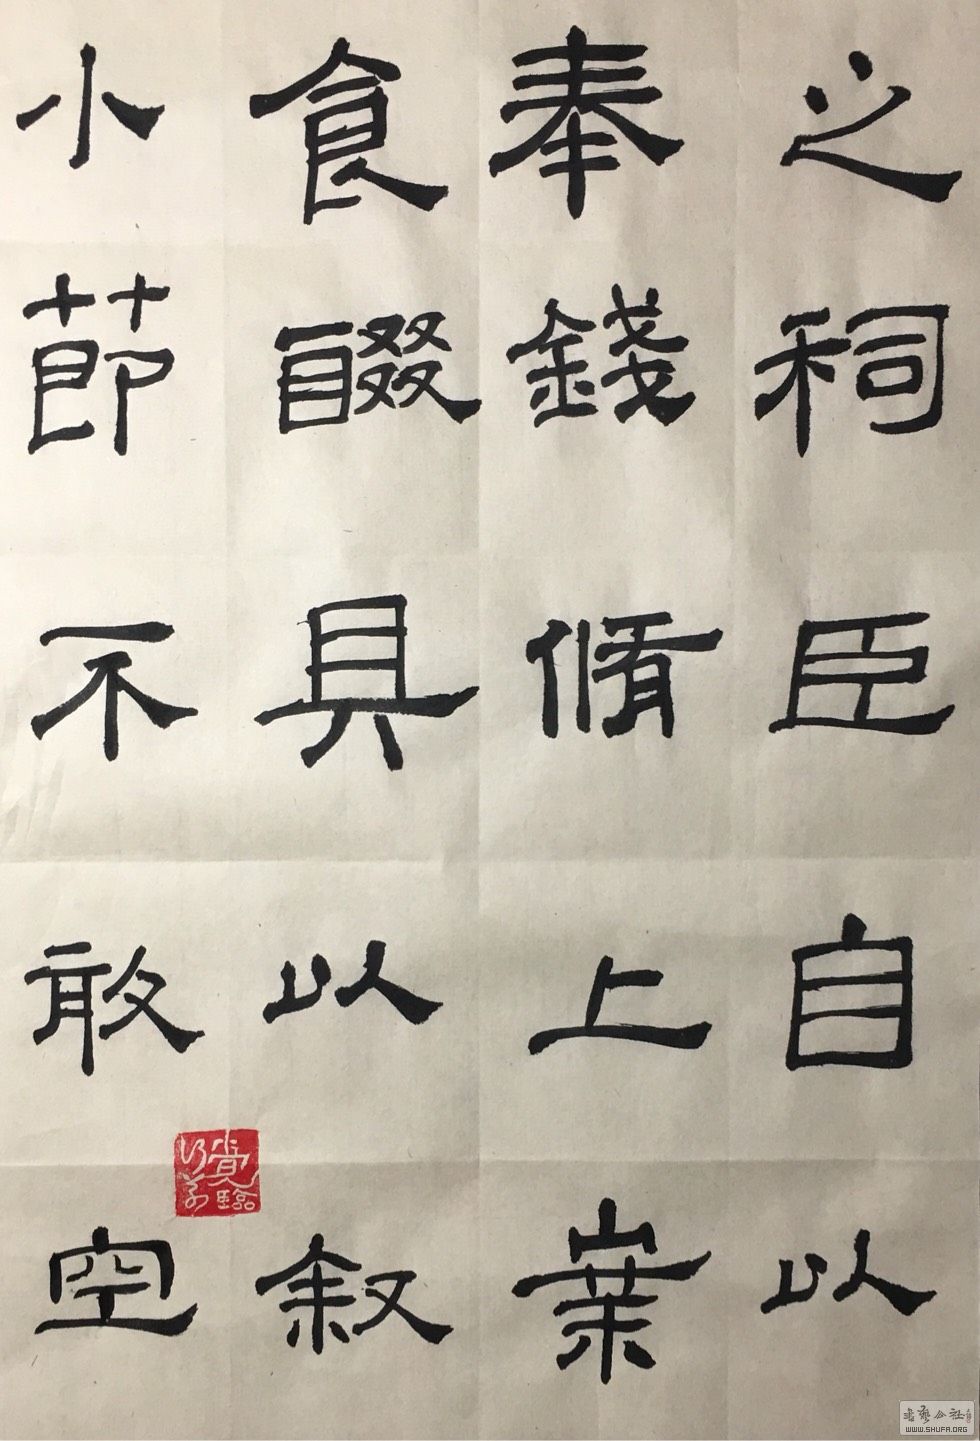 之祠臣自以
奉錢脩上案
食醊具以叙
小節不敢空
书艺公社
WWW.SHUFA.ORG